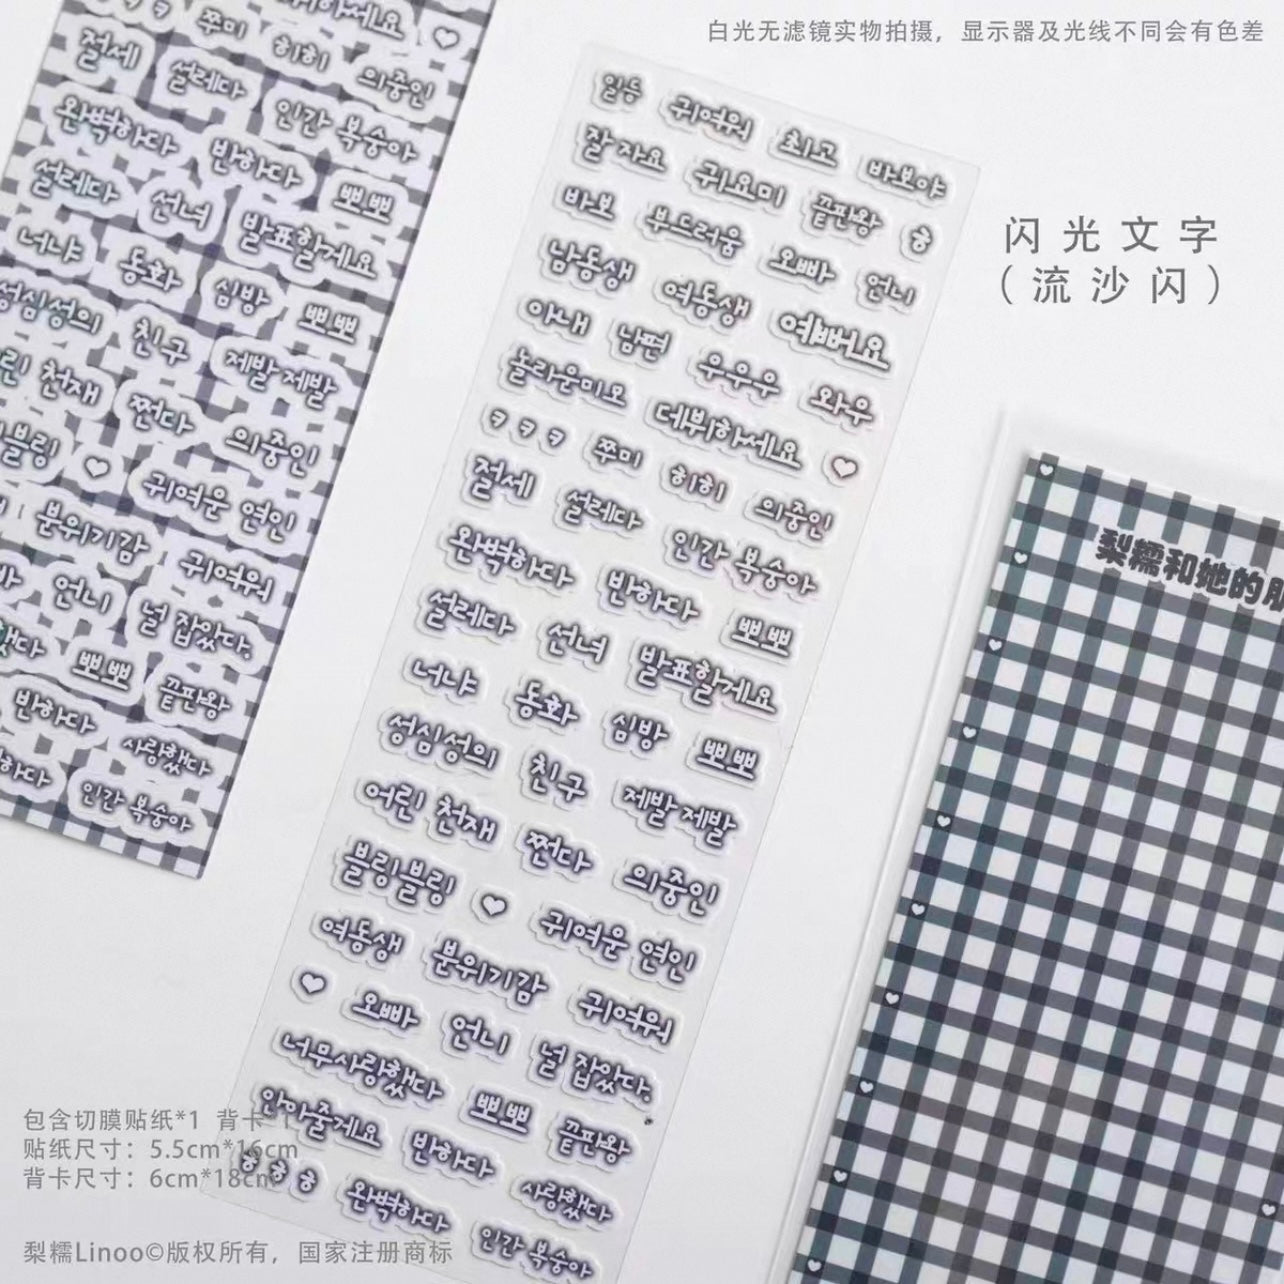 白光无滤镜实物拍摄，显示器及光线不同会有色差
闪光文字
（流沙闪）
쭈미 히히
절세 설레다 의중인
완벽하다 인간 복숭아
설레다 반하다 뽀뽀
선녀 발표할게요
너냐 동화 심방 뽀뽀
성심성의 친구 제발 제발
천재 쩐다 의중인
귀여운 연인
분위기감 귀여워
언니 널 잡았다.
뽀뽀 끝판왕
반하다 사랑했다
인간 복숭아
일등 귀여워 최고 바보야
잘자요 귀요미 끝판왕 ㅎ
바보 부드러움 오빠 언니
남동생 여동생 예뻐요
아내 남편 우우우 와우
놀라운미모 데뷔하세요
ㅋㅋㅋ 쭈미 히히 의중인
절세 설레다 인간 복숭아
완벽하다 반하다 뽀뽀
설레다 선녀 발표할게요
너냐 동화 심방 뽀뽀
성심성의 친구 제발 제발
어린 천재 쩐다 의중인
블링블링 귀여운 연인
여동생 분위기감 귀여워
오빠 언니 널 잡았다.
너무사랑했다 뽀뽀 끝판왕
안아줄게요 반하다 사랑했다
ㅎㅎㅎ 완벽하다 인간 복숭아
梨糯和她的
包含切膜贴纸*1 背卡*1
贴纸尺寸：5.5cm*16cm
背卡尺寸：6cm*18cm
梨糯Linoo©版权所有，国家注册商标